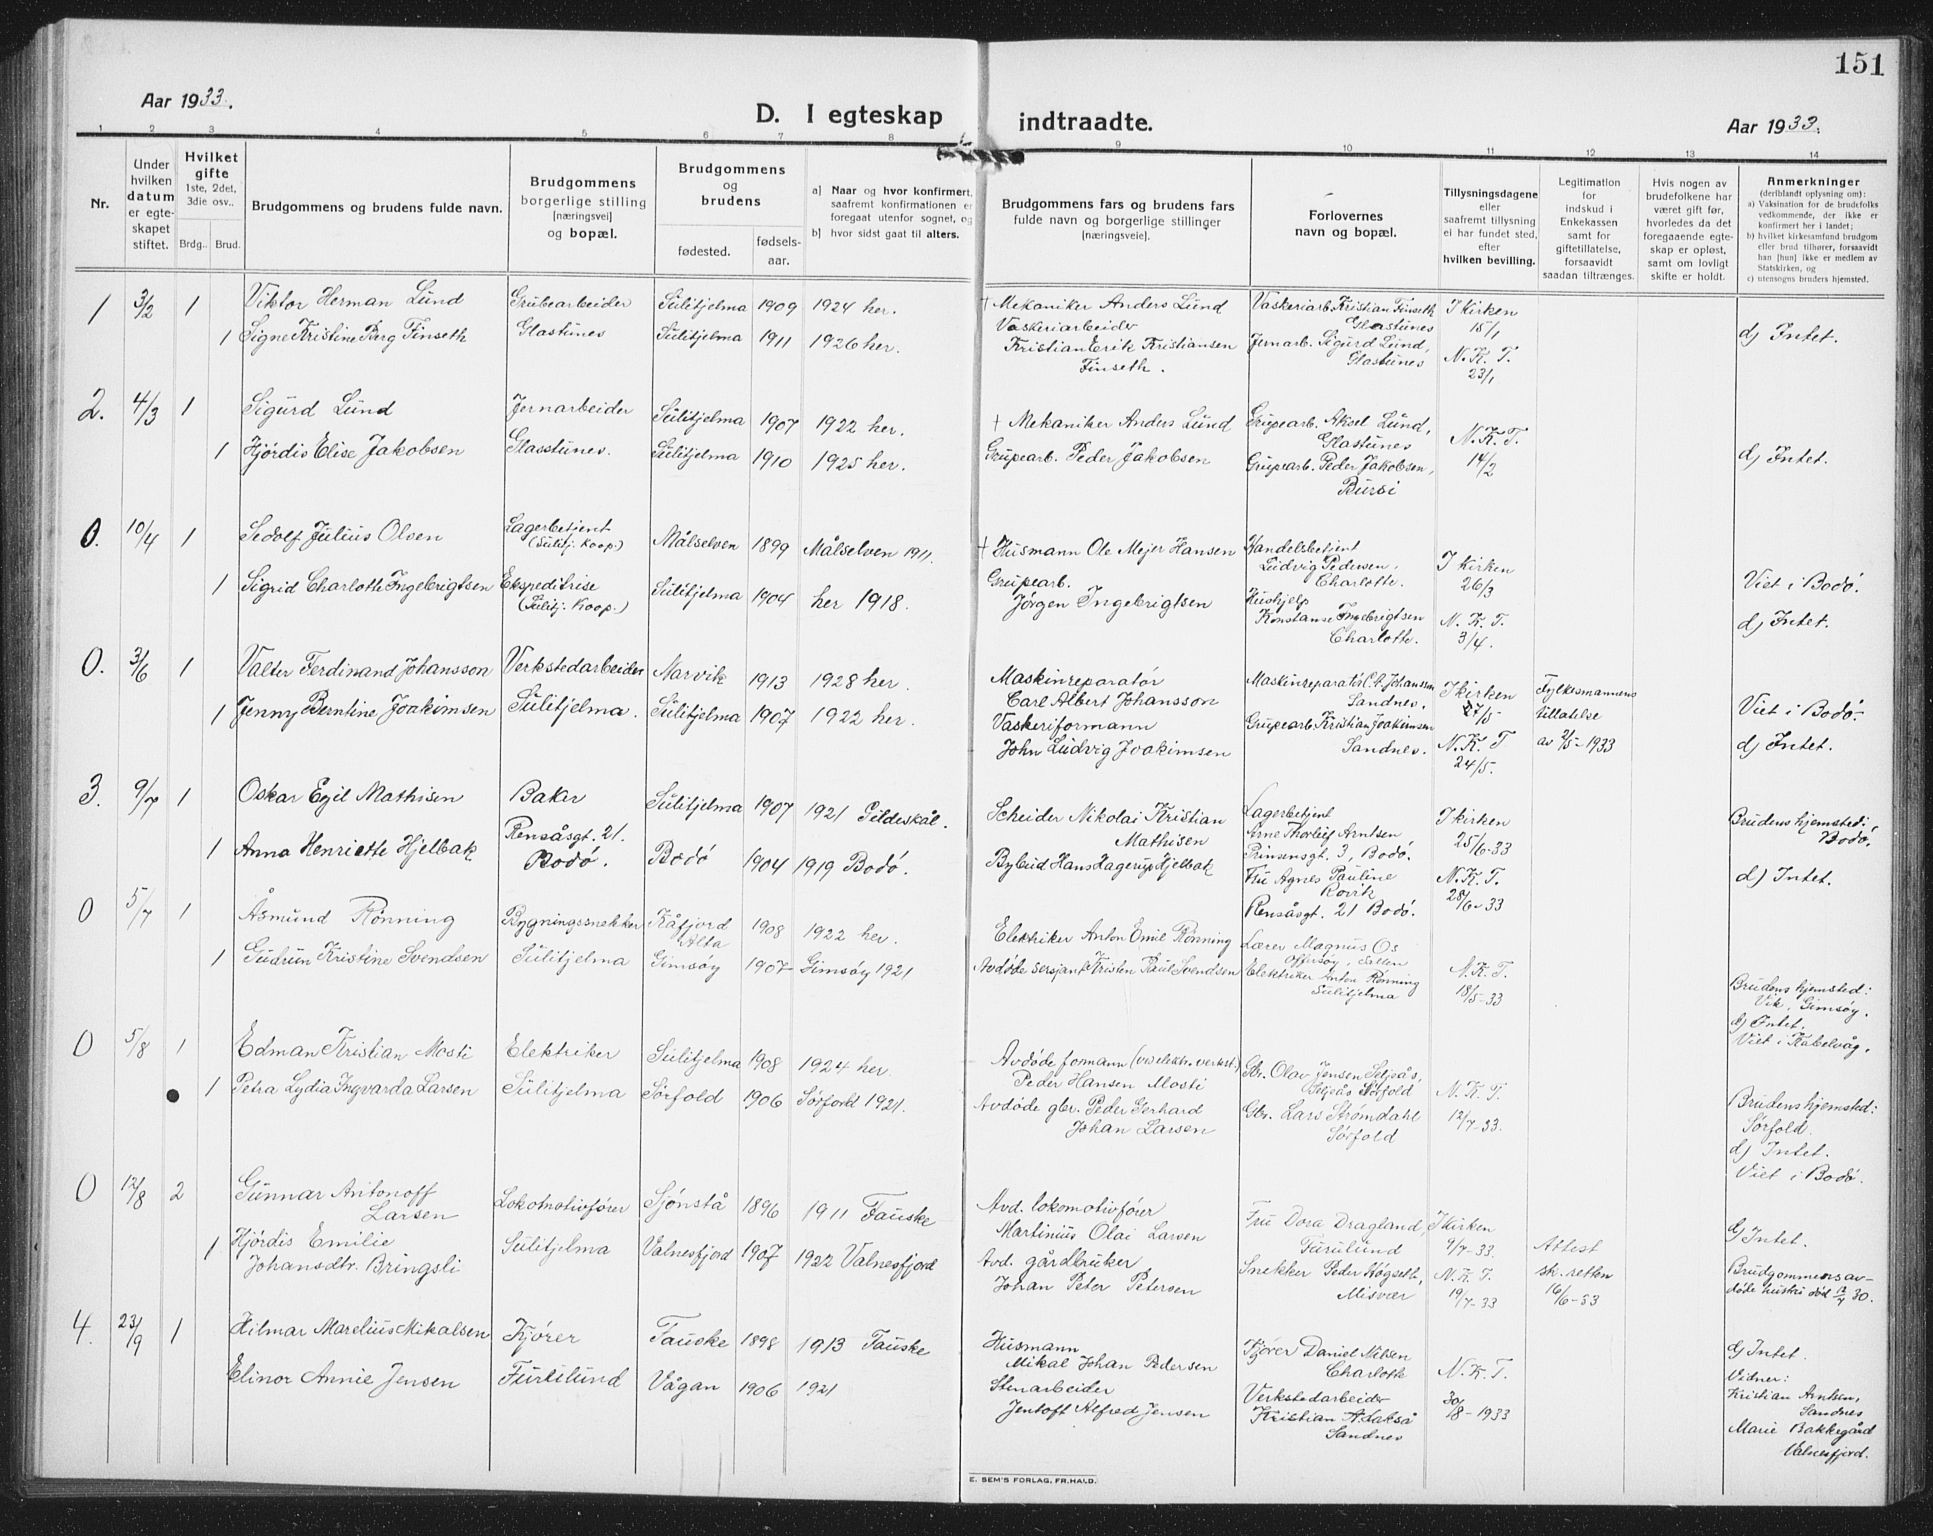 151
Aar 1933.
D. I egteskap indtraadte.
Aar 1933.
1 2 3 4 5 6 7 8 9 10 11 12 13 14
Nr.
Under hvilken datum er egte-skapet stiftet.
Hvilket gifte 1ste, 2det, 3die osv..
Brdg.. Brud.
Brudgommens og brudens fulde navn.
Brudgommens borgerlige stilling [næringsvei] og bopæl.
Brudgommens og brudens
fødested. fødsels-aar.
a] Naar og hvor konfirmert, saafremt konfirmationen er foregaat utenfor sognet, og
b] hvor sidst gaat til alters.
Brudgommens fars og brudens fars fulde navn og borgerlige stillinger [næringsveie].
Forlovernes navn og bopæl.
Tillysningsdagene eller saafremt tillysning ei har fundet sted, efter hvilken bevilling.
Legitimation for indskud i Enkekassen samt for giftetillatelse, forsaavidt saadan tiltrænges.
Hvis nogen av brudefolkene har været gift før, hvorledes da det foregaaende egte-skap er opløst, samt om lovligt skifte er holdt.
Anmerkninger (deriblandt oplysning om): a) Vaksination for de brudefolks vedkommende, der ikke er konfirmert her i landet; b) hvilket kirkesamfund brudgom eller brud tilhører, forsaavidt han [hun] ikke er medlem av Statskirken, og c) utensogns bruders hjemsted.
1 3/2 1 Viktor Herman Lund Grubearbeider Sulitjelma 1909 1924 her. † Mekaniker Anders Lund Vaskeriarb. Kristian Finseth Glastunes I kirken 15/1
1 Signe Kristine Berg Finseth Glastunes Sulitjelma 1911 1926 her. Vaskeriarbeider Kristian Erik Kristiansen Finseth. Jernarb. Sigurd Lund, Glastunes N. K. T. 23/1 d) Intet.
2. 4/3 1 Sigurd Lund Jernarbeider Sulitjelma 1907 1922 her. † Mekaniker Anders Lund Grupearb. Aksel Lund, Glastunes N. K. T. 14/2
1 Hjördis Elise Jakobsen Glasstunes. Sulitjelma 1910 1925 her. Grupearb. Peder Jakobsen Grupearb. Peder Jakobsen, Bursi d) Intet.
0. 10/4 1 Sedolf Julius Olsen Lagerbetjent (Sulitj. Koop.) Målselven 1899 Målselven 1911. † Husmann Ole Mejer Hansen Handelsbetjent Ludvig Pedersen, Charlotte. I kirken 26/3 Viet i Bodö.
1 Sigrid Charlotte Ingebrigtsen Ekspeditrise (Sulitj. Koop.) Sulitjelma 1904 her 1918. Grupearb. Jörgen Ingebrigtsen Hushjelp Konstanse Ingebrigtsen Charlotte. N. K. T. 3/4. d) Intet.
0. 3/6 1 Valter Ferdinand Johansson Verkstedarbeider Narvik 1913 1928 her. Maskinreparatør Carl Albert Johansson Maskinreparatör C. A. Johansson Sandnes. I kirken 27/5 Fylkesmannens tillatelse av 2/5-1933 Viet i Bodö.
1 Jenny Berntine Joakimsen Sulitjelma. Sulitjelma 1907 1922 her. Vaskeriformann John Ludvig Joakimsen Grupearb. Kristian Joakimsen Sandnes. N. K. T 24/5. d) Intet.
3. 9/7 1 Oskar Egil Mathisen Baker Sulitjelma 1907 1921 Gildeskål. Scheider Nikolai Kristian Mathisen Lagerbetjent Arne Thorleif Arntsen Prinsensgt. 3, Bodö. I kirken 25/6-33 Brudens hjemsted: Bodö.
1 Anna Henriette Hjelbak Rensåsgt. 21. Bodö. Bodö 1904 1919 Bodö. Bybud Hans Hagerup Hjelbak Fru Agnes Pauline Rovik Rensåsgt. 21 Bodö. N. K. T. 28/6-33 d) Intet.
0 5/7 1 Åsmund Rönning Bygningssnekker Kåfjord Alta 1908 1922 her. Elektriker Anton Emil Rönning Lærer Magnus Os Offersøy,
1 Gudrun Kristine Svendsen Sulitjelma Gimsöy 1907 Gimsöy 1921 Avdöde sersjant Kristen Paul Svendsen Elektriker Anton Rönning Sulitjelma N. K. T. 18/5-33 Brudens hjemsted: Vik, Gimsöy. d) Intet. Viet i Kabelvåg.
0 5/8 1 Edman Kristian Mosti Elektriker Sulitjelma 1908 1924 her. Avdöde formann (ved elektr. verkst.) Peder Hansen Mosti Gbr. Olav Jensen Seljeås, Seljeås Sörfold N. K. T. 12/7-33.
1 Petra Lydia Ingvarda Larsen Sulitjelma Sörfold 1906 Sörfold 1921. Avdöde gbr. Peder Gerhard Johan Larsen Gbr. Lars Strømdahl Sörfold Brudens hjemsted: Sörfold. d) Intet. Viet i Bodö.
0 12/8 2 Gunnar Antonoff Larsen Lokomotivförer Sjönstå 1896 1911 Fauske Avd. lokomotivförer Martinius Olai Larsen Fru Dora Dragland, Furulund I kirken 9/7-33. Attest sk. retten 16/6-33 d) Intet.
1 Hjördis Emilie Johansdtr. Bringsli Sulitjelma Valnesfjord 1907 1922 Valnesfjord Avd. gårdbruker Johan Peter Petersen Snekker Peder Høgseth, Misvær N. K. T. 19/7-33 Brudgommens av-döde hustru död 30.
4. 23/9 1 Hilmar Marelius Mikalsen Kjörer Fauske 1898 1913 Fauske Husmann Mikal Johan Pedersen Kjörer Daniel Nilsen Charlotte N. K. T. 30/8-1933 d) Intet.
Elinor Annie Jensen Furulund Vågan 1906 1921 Stenarbeider Jentoft Alfred Jensen Verkstedarbeider Kristian A. Lakså Sandnes Vidner: Kristian Arntsen, Sandnes Marie Bakkegård Valnesfjord.
E. SEM'S FORLAG, FR.HALD.